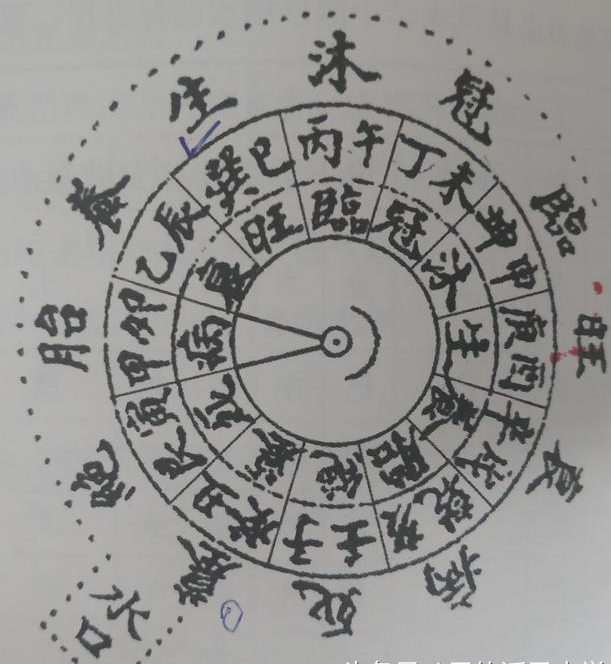 生
沐
冠
臨
旺
衰
病
死
胎
養
水口
巽巳
丙午
丁未
坤申
庚酉
辛戌
乾亥
壬子
癸丑
艮寅
甲卯
乙辰
旺
臨
冠
沐
生
養
胎
死
病
衰